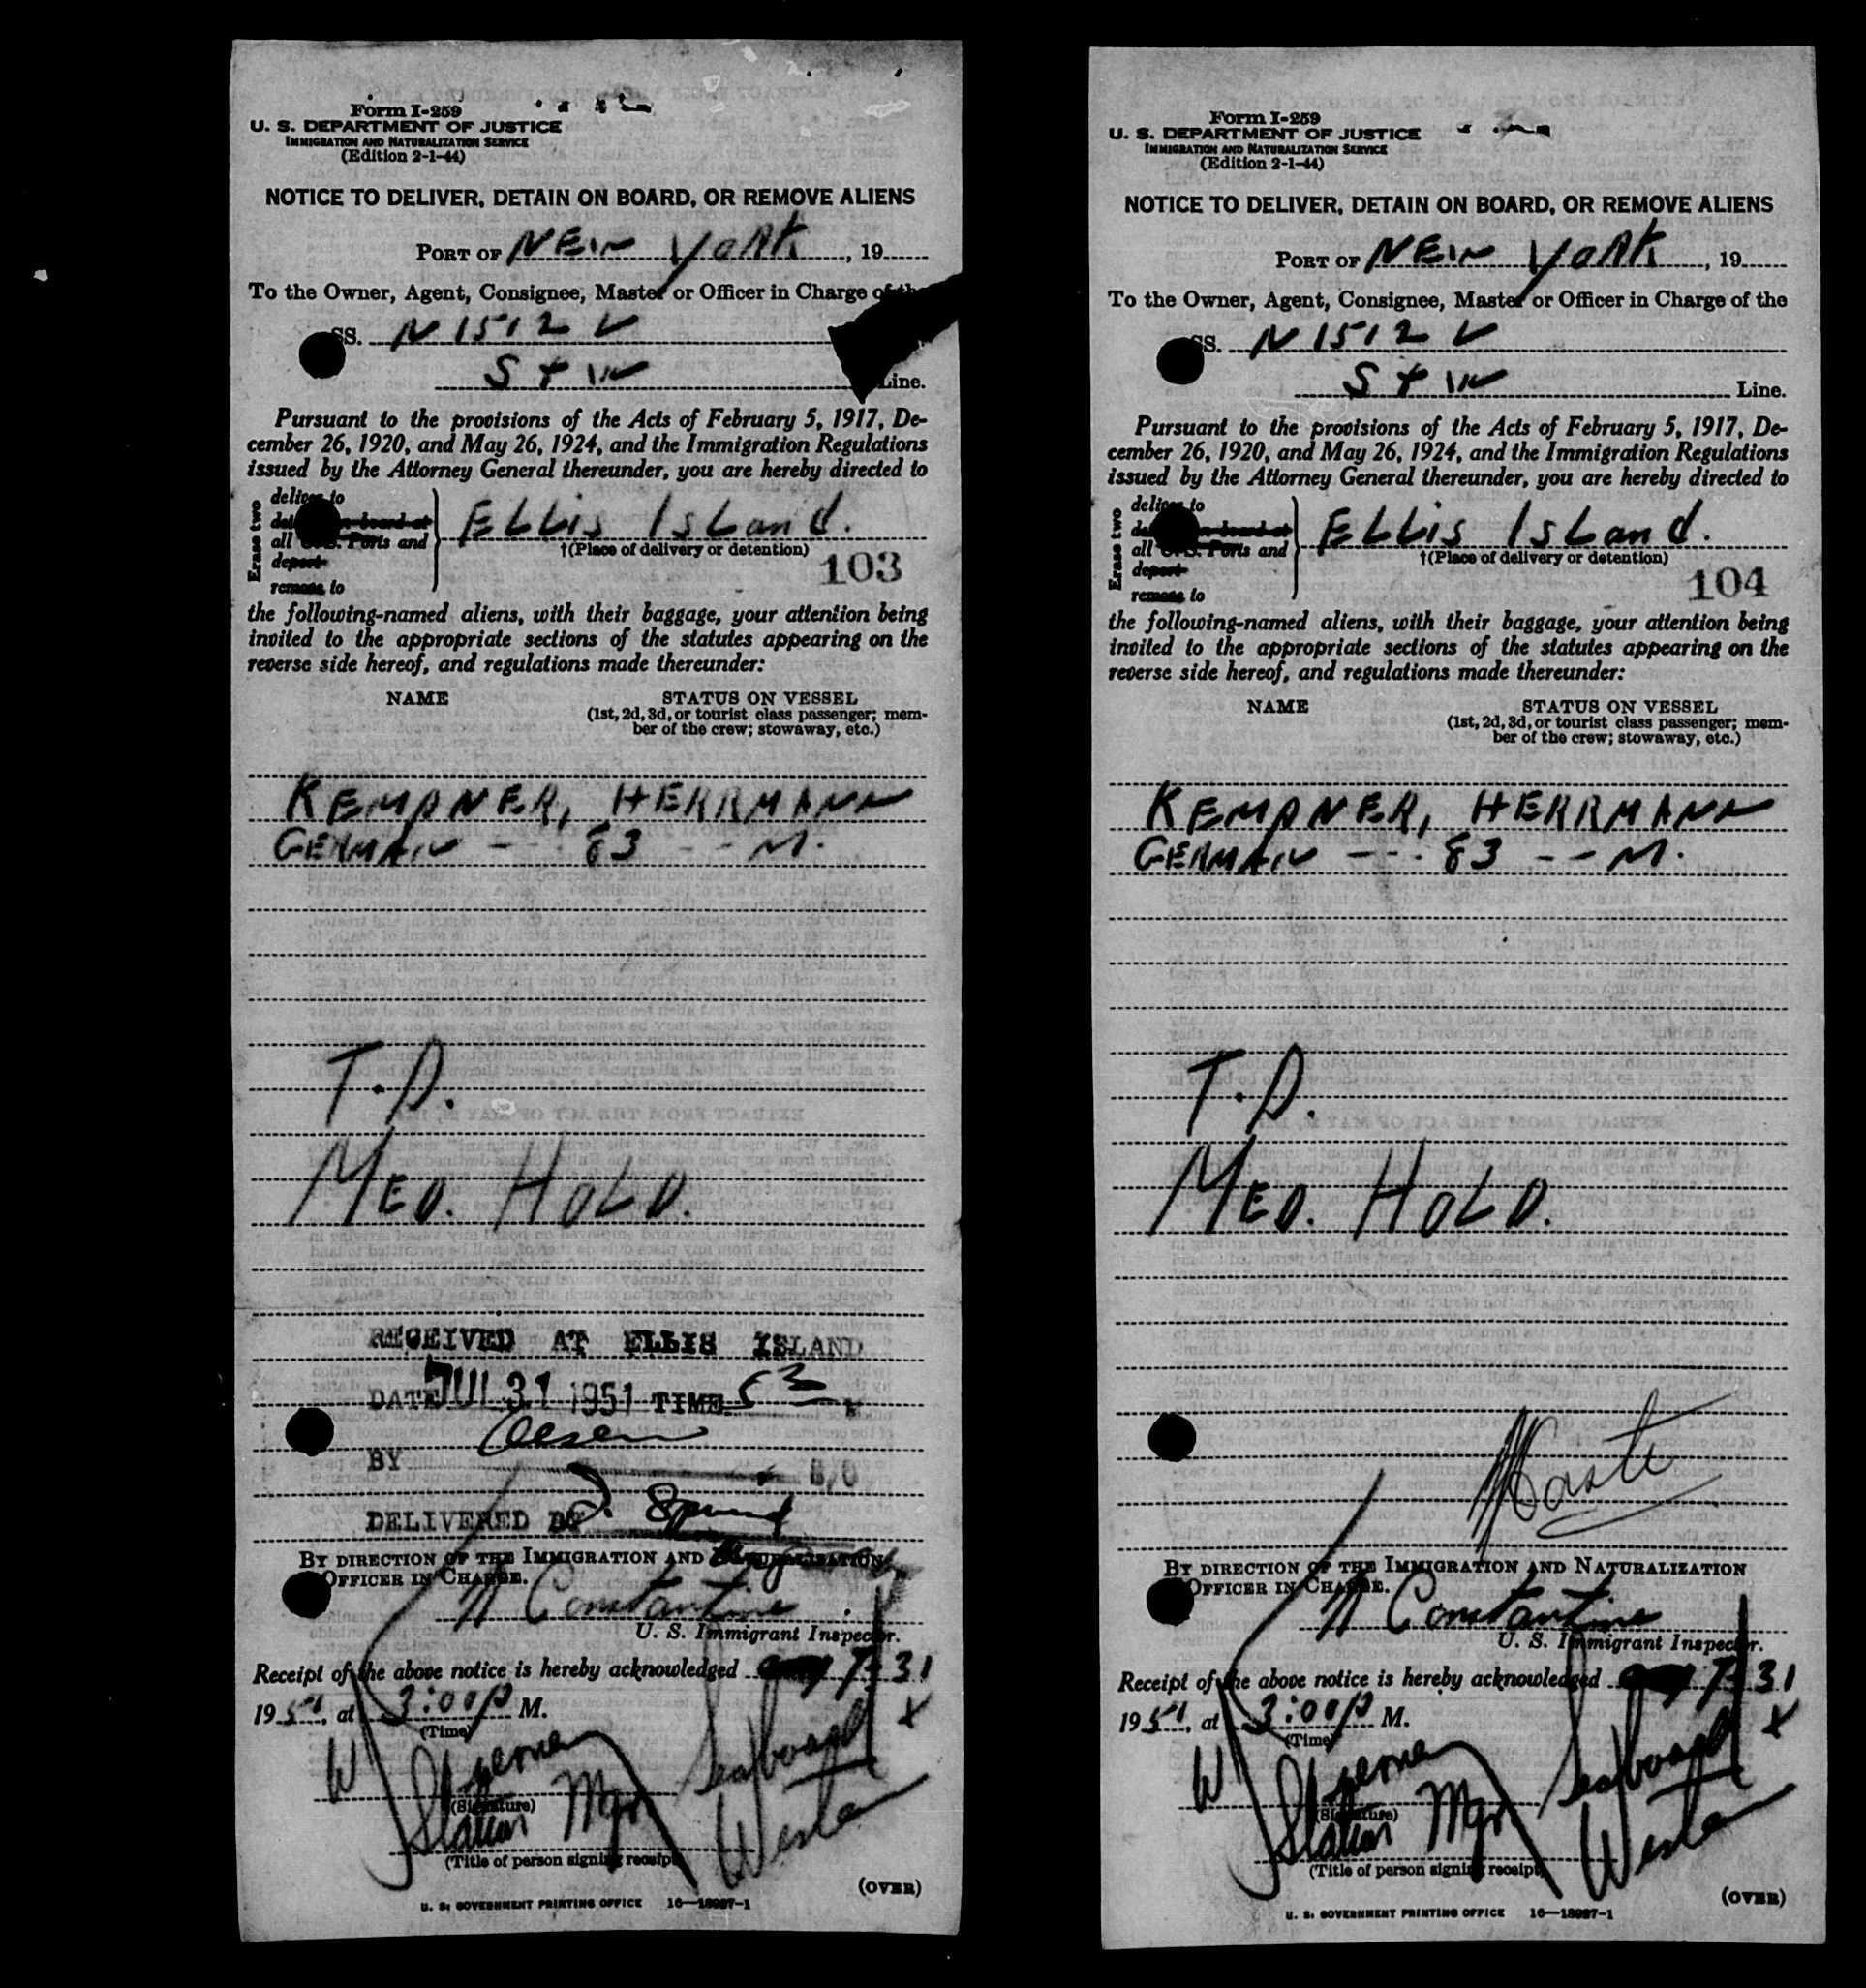 Form I-259
U. S. DEPARTMENT OF JUSTICE
IMMIGRATION AND NATURALIZATION SERVICE
(Edition 2-1-44)
NOTICE TO DELIVER, DETAIN ON BOARD, OR REMOVE ALIENS
PORT OF NEW YORK, 19
To the Owner, Agent, Consignee, Master or Officer in Charge of the
SS. N 1512 V
S & W Line.
Pursuant to the provisions of the Acts of February 5, 1917, De-
cember 26, 1920, and May 26, 1924, and the Immigration Regulations
issued by the Attorney General thereunder, you are hereby directed to
Erase two
deliver to
on board at
all U.S. Ports and
deport
remove to
ELLIS ISLAND.
†(Place of delivery or detention)
103
the following-named aliens, with their baggage, your attention being
invited to the appropriate sections of the statutes appearing on the
reverse side hereof, and regulations made thereunder:
NAME STATUS ON VESSEL
(1st, 2d, 3d, or tourist class passenger; mem-
ber of the crew; stowaway, etc.)
KEMPNER, HERRMANN
GERMAN --- 83 -- M.
T.D.
MED. HOLD.
RECEIVED AT ELLIS ISLAND
DATE JUL 31 1951 TIME
BY Olsen
DELIVERED BY
BY DIRECTION OF THE IMMIGRATION AND NATURALIZATION
OFFICER IN CHARGE.
N Constantine
U. S. Immigrant Inspector.
Receipt of the above notice is hereby acknowledged 7-31
1951, at 3:00 P M.
(Time)
W Seaboard &
(Signature)
Station Mgr Western
(Title of person signing receipt)
(OVER)
U. S. GOVERNMENT PRINTING OFFICE 16—18987-1
Form I-259
U. S. DEPARTMENT OF JUSTICE
IMMIGRATION AND NATURALIZATION SERVICE
(Edition 2-1-44)
NOTICE TO DELIVER, DETAIN ON BOARD, OR REMOVE ALIENS
PORT OF NEW YORK, 19
To the Owner, Agent, Consignee, Master or Officer in Charge of the
SS. N 1512 V
S & W Line.
Pursuant to the provisions of the Acts of February 5, 1917, De-
cember 26, 1920, and May 26, 1924, and the Immigration Regulations
issued by the Attorney General thereunder, you are hereby directed to
Erase two
deliver to
on board at
all U.S. Ports and
deport
remove to
ELLIS ISLAND.
†(Place of delivery or detention)
104
the following-named aliens, with their baggage, your attention being
invited to the appropriate sections of the statutes appearing on the
reverse side hereof, and regulations made thereunder:
NAME STATUS ON VESSEL
(1st, 2d, 3d, or tourist class passenger; mem-
ber of the crew; stowaway, etc.)
KEMPNER, HERRMANN
GERMAN --- 83 -- M.
T.D.
MED. HOLD.
BY DIRECTION OF THE IMMIGRATION AND NATURALIZATION
OFFICER IN CHARGE.
N Constantine
U. S. Immigrant Inspector.
Receipt of the above notice is hereby acknowledged 7-31
1951, at 3:00 P M.
(Time)
W Seaboard &
(Signature)
Station Mgr Western
(Title of person signing receipt)
(OVER)
U. S. GOVERNMENT PRINTING OFFICE 16—18987-1